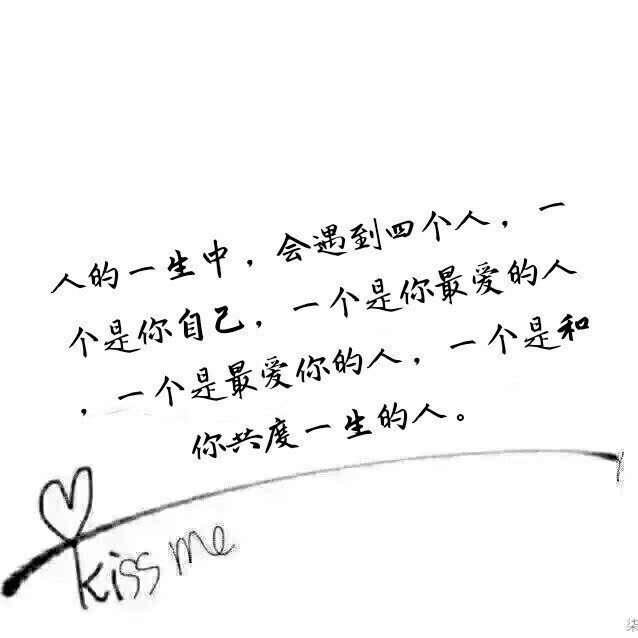 人的一生中，会遇到四个人，一
个是你自己，一个是你最爱的人
，一个是最爱你的人，一个是和
你共度一生的人。
kiss me
柒